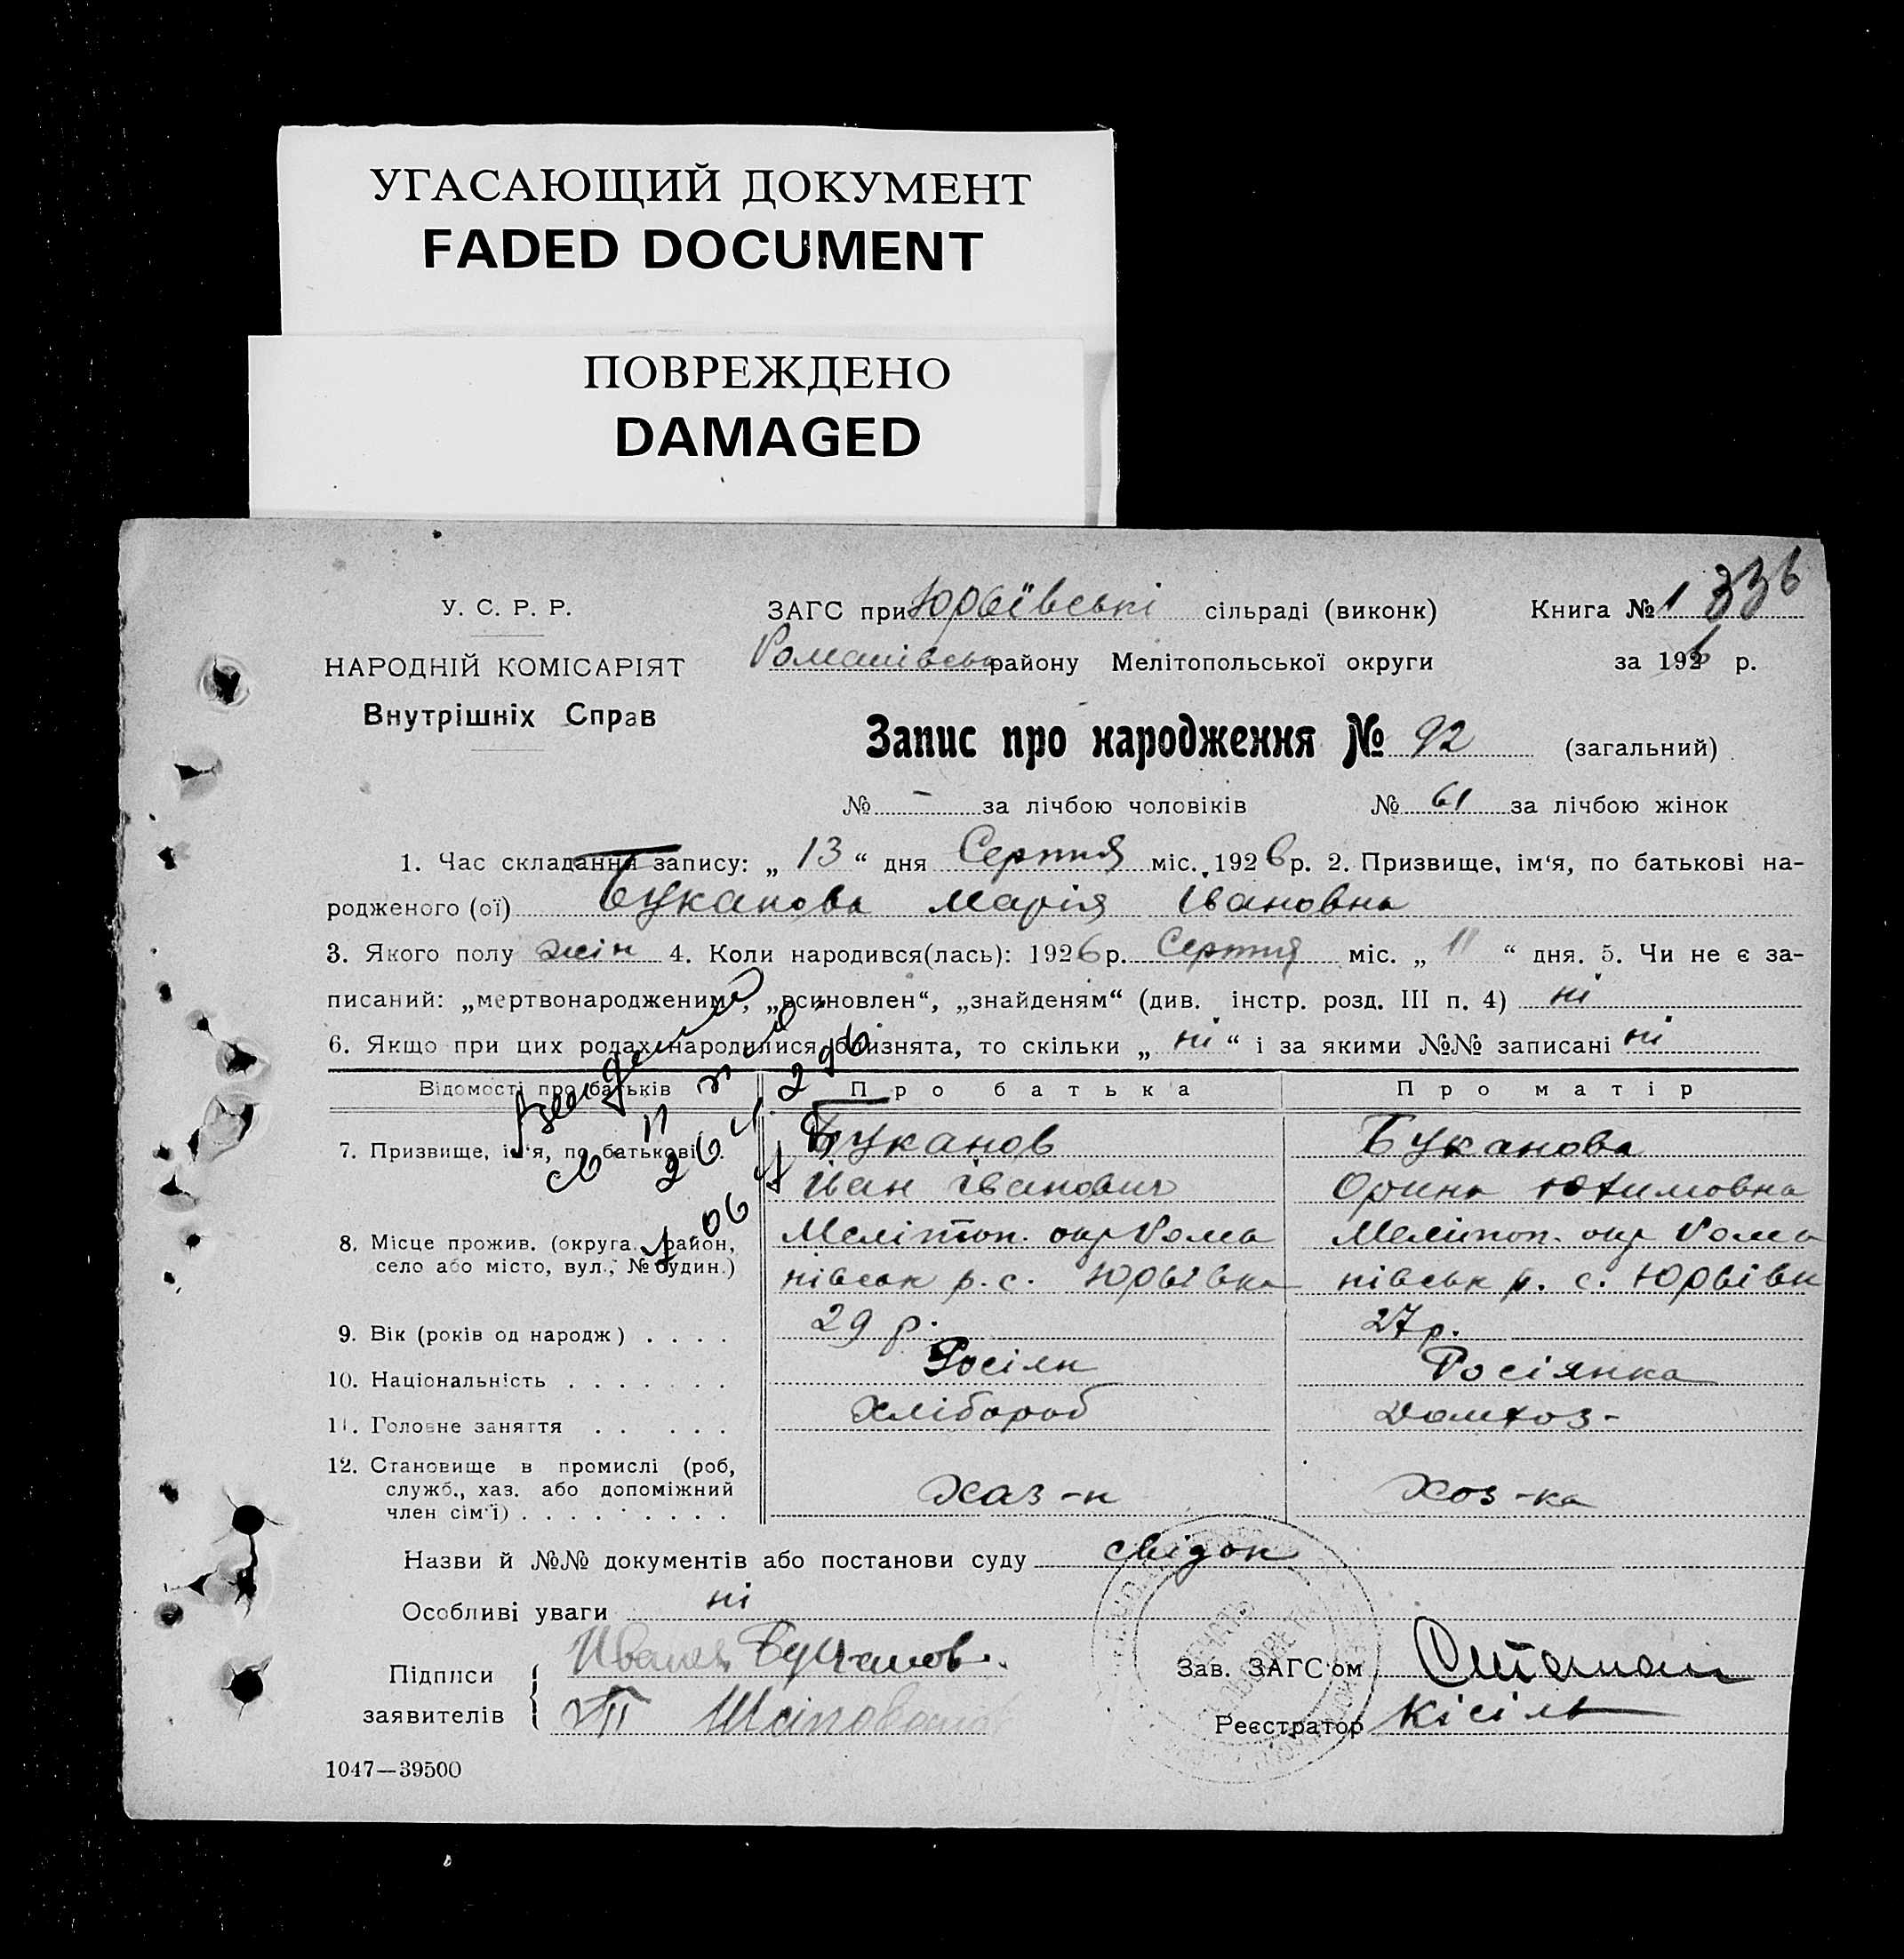 УГАСАЮЩИЙ ДОКУМЕНТ
FADED DOCUMENT
ПОВРЕЖДЕНО
DAMAGED
У. С. Р. Р.
НАРОДНІЙ КОМІСАРІЯТ
Внутрішніх Справ
ЗАГС при Юрьївські сільраді (виконк) Книга № 1 336
Романівськ району Мелітопольської округи за 1926 р.
Запис про народження № 92 (загальний)
№ - за лічбою чоловіків № 61 за лічбою жінок
1. Час складання запису: „ 13 “ дня Серпня міс. 1926 р. 2. Призвище, ім‘я, по батькові на-
родженого (ої) Буканова Марія Івановна
3. Якого полу жін 4. Коли народився(лась): 1926 р. Серпня міс. „ 11 “ дня. 5. Чи не є за-
писаний: „мертвонародженим“, „всиновлен“, „знайденям“ (див. інстр. розд. III п. 4) ні
6. Якщо при цих родах народилися близнята, то скільки „ ні “ і за якими №№ записані ні
Відомості про батьків Про батька Про матір
7. Призвище, ім‘я, по батькові . Буканов Буканова
Іван Іванович Орина Юхимовна
8. Місце прожив. (округа. район, Мелітоп. окр Рома Меліпоп. окр Рома
село або місто, вул., № будин.) нівськ р. с. Юрьівка нівськ р. с. Юрьівки
9. Вік (років од народж) . . . . 29 р. 27 р.
10. Національність . . . . . . . Росіян Росіянка
11. Головне заняття . . . . . Хлібороб Домхоз-
12. Становище в промислі (роб,
служб., хаз. або допоміжний Хаз-н Хоз-ка
член сім‘ї) . . . . . . . . .
Назви й №№ документів або постанови суду свідок
Особливі уваги ні
Підписи Иван Буканов. Зав. ЗАГС‘ом
заявителів Реєстратор Кісіль
1047—39500